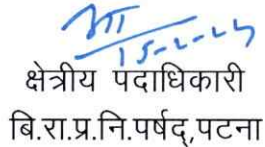 15-2-25
क्षेत्रीय पदाधिकारी
बि.रा.प्र.नि.पर्षद्,पटना